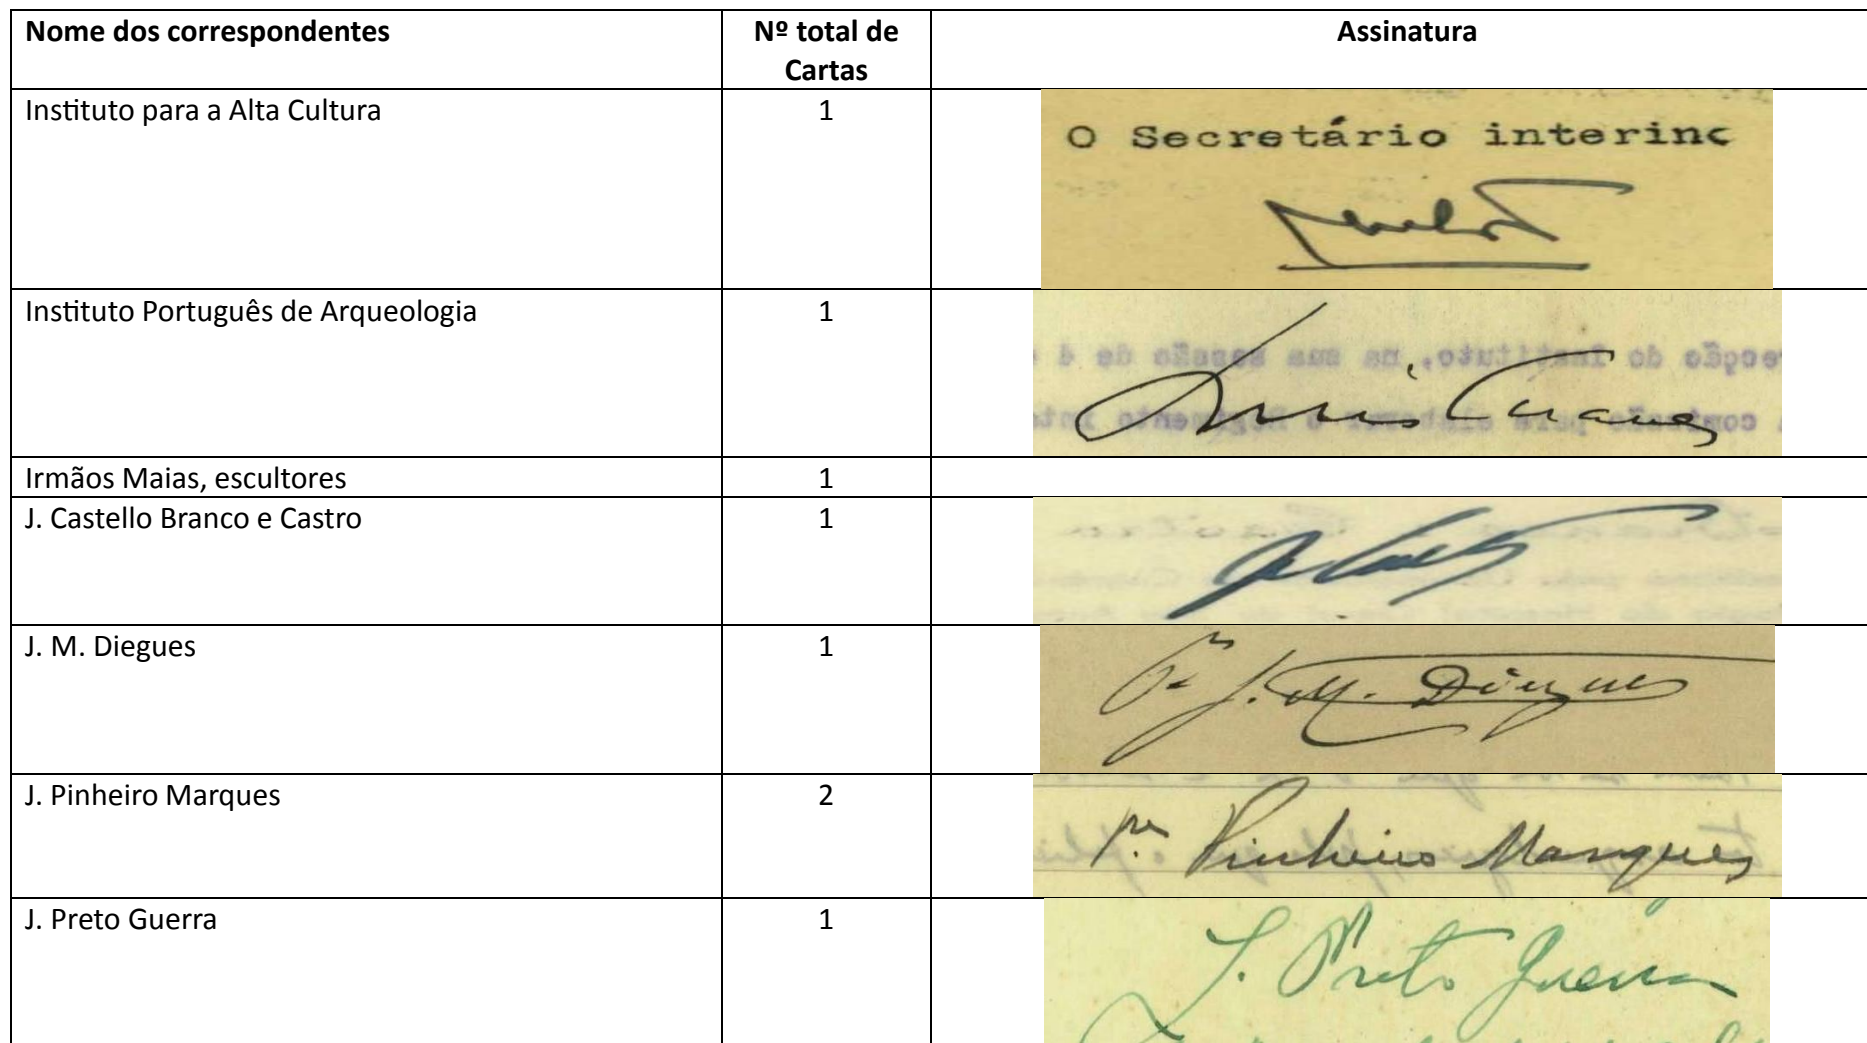 Nome dos correspondentes
Nº total de Cartas
Assinatura
Instituto para a Alta Cultura
1
O Secretário interino
Instituto Português de Arqueologia
1
Irmãos Maias, escultores
1
J. Castello Branco e Castro
1
J. M. Diegues
1
Pe J. M. Diegues
J. Pinheiro Marques
2
Pe. Pinheiro Marques
J. Preto Guerra
1
J. Preto Guerra